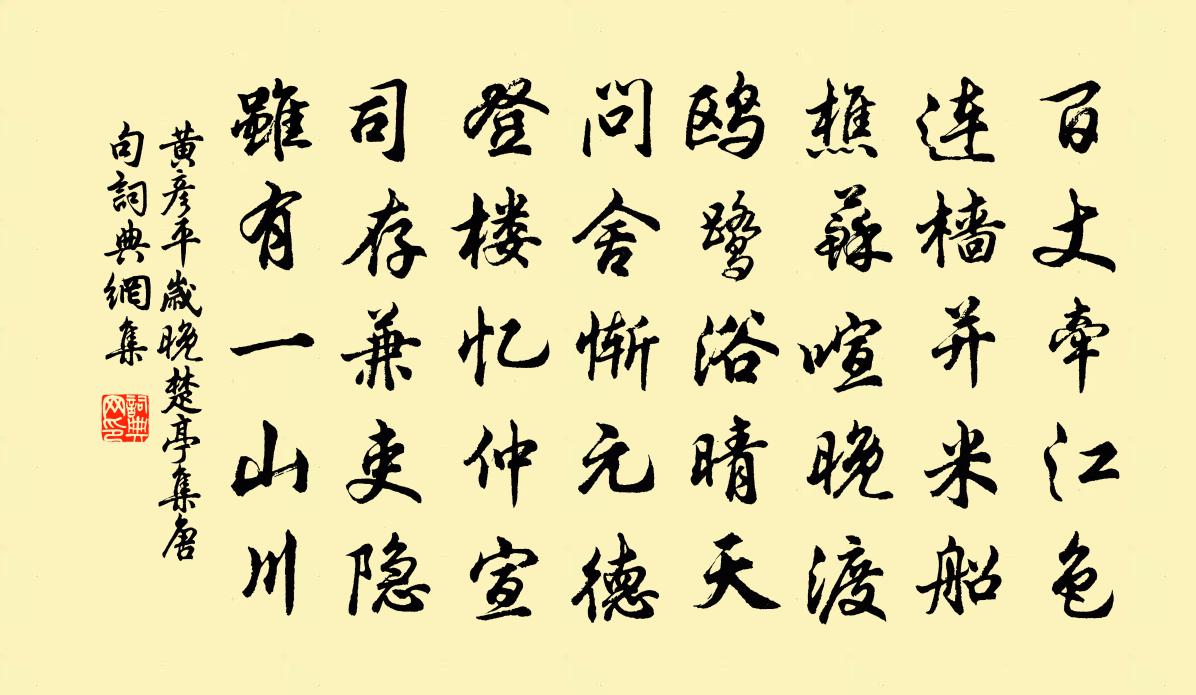 百丈牵江色
连樯并米船
樵蘇喧晚渡
鸥鹭浴晴天
问舍惭元德
登楼忆仲宣
司存兼吏隐
雖有一山川
黄彦平歳晚楚亭集唐
句詞典網集
詞典
网印